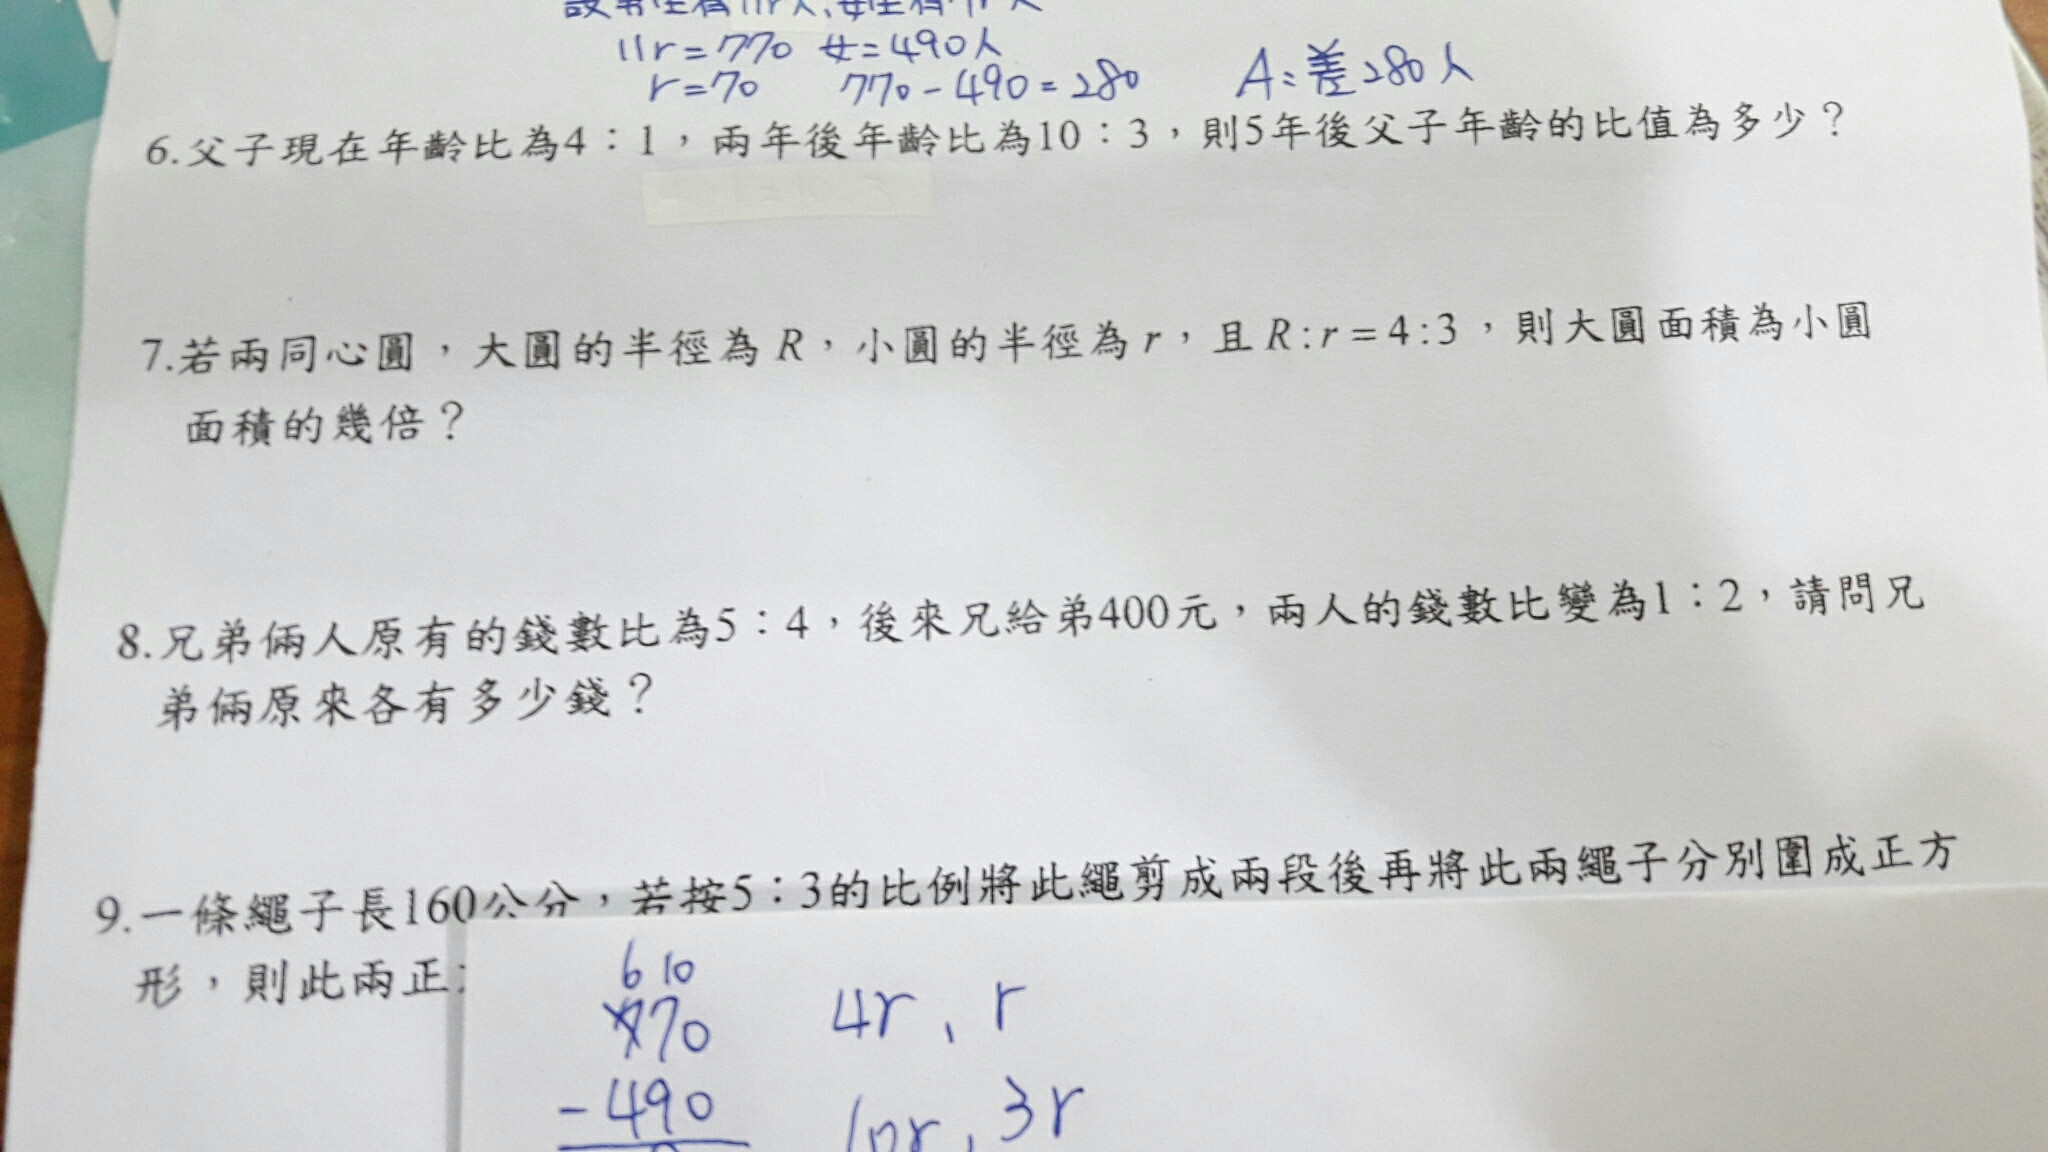 設男生有11r人、女生有7r人
11r=770 女=490人
r=70 770-490=280 A:差280人
6.父子現在年齡比為4：1，兩年後年齡比為10：3，則5年後父子年齡的比值為多少？
7.若兩同心圓，大圓的半徑為R，小圓的半徑為r，且R:r=4:3，則大圓面積為小圓
面積的幾倍？
8.兄弟倆人原有的錢數比為5：4，後來兄給弟400元，兩人的錢數比變為1：2，請問兄
弟倆原來各有多少錢？
9.一條繩子長160公分，若按5：3的比例將此繩剪成兩段後再將此兩繩子分別圍成正方
形，則此兩正
6 10
770 4r、r
-490 10r、3r